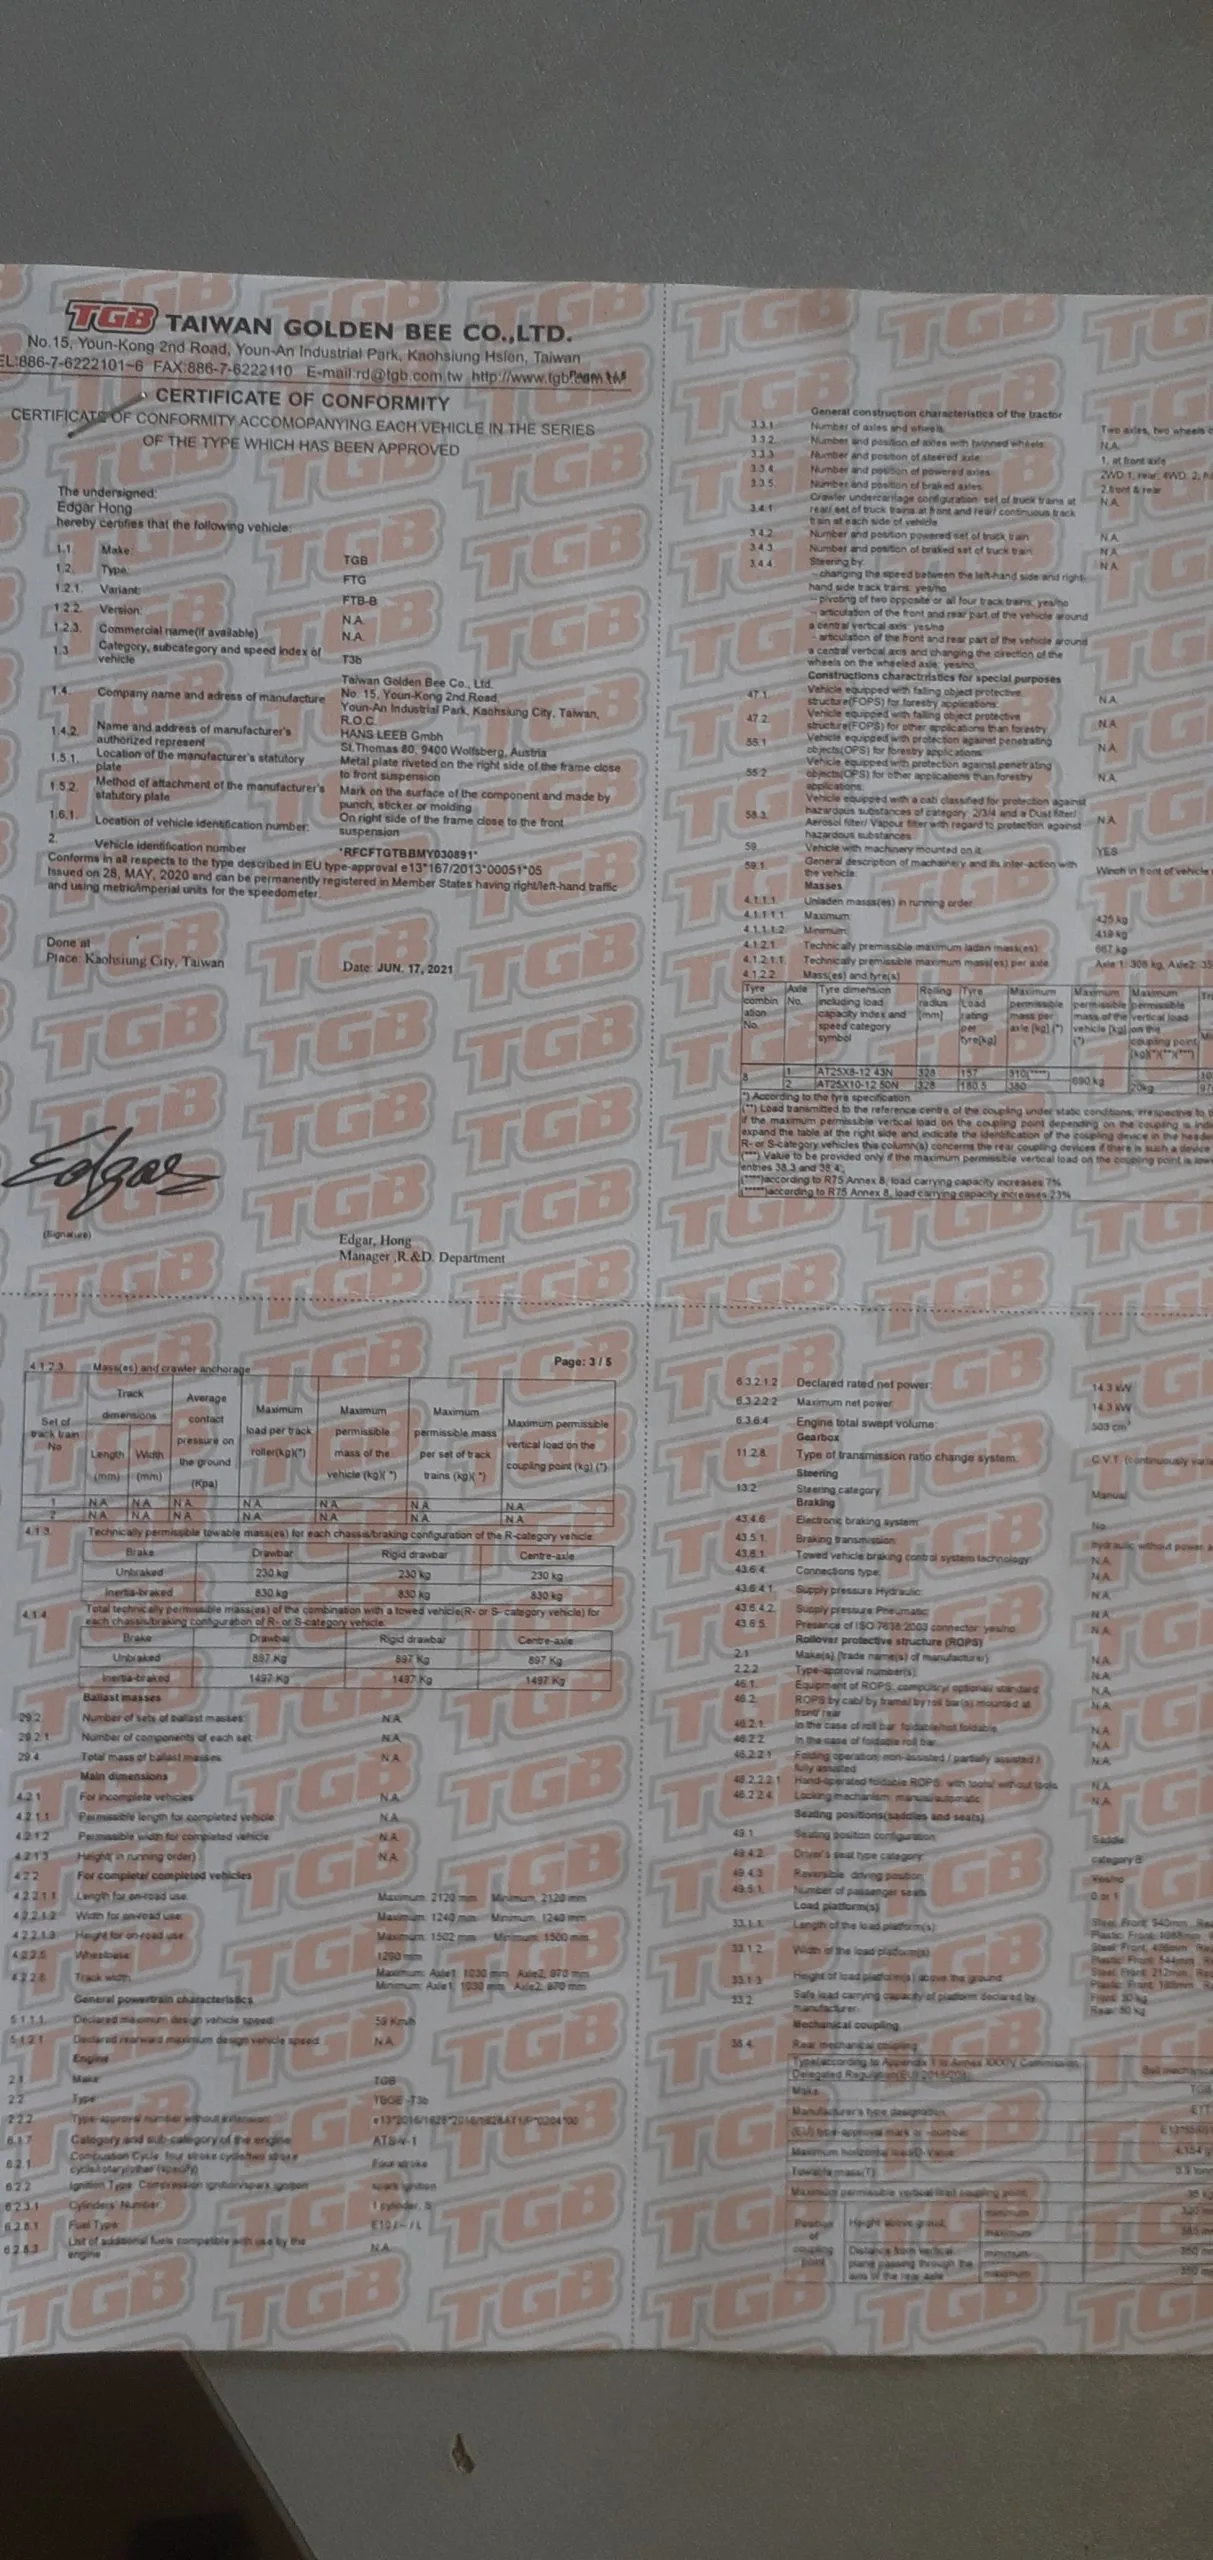 TGB TAIWAN GOLDEN BEE CO.,LTD.
No.15, Youn-Kong 2nd Road, Youn-An Industrial Park, Kaohsiung Hsien, Taiwan
EL:886-7-6222101~6 FAX:886-7-6222110 E-mail:rd@tgb.com.tw http://www.tgb.com.tw
CERTIFICATE OF CONFORMITY
CERTIFICATE OF CONFORMITY ACCOMOPANYING EACH VEHICLE IN THE SERIES
OF THE TYPE WHICH HAS BEEN APPROVED
The undersigned:
Edgar Hong
hereby certifies that the following vehicle:
1.1. Make: TGB
1.2. Type: FTG
1.2.1. Variant: FTB-B
1.2.2. Version: N.A.
1.2.3. Commercial name(if available) N.A.
1.3. Category, subcategory and speed index of
vehicle T3b
1.4. Company name and adress of manufacture
Taiwan Golden Bee Co., Ltd.
No. 15, Youn-Kong 2nd Road,
Youn-An Industrial Park, Kaohsiung City, Taiwan,
R.O.C.
1.4.2. Name and address of manufacturer's
authorized represent
HANS LEEB Gmbh
St.Thomas 80, 9400 Wolfsberg, Austria
1.5.1. Location of the manufacturer's statutory
plate
Metal plate riveted on the right side of the frame close
to front suspension
1.5.2. Method of attachment of the manufacturer's
statutory plate
Mark on the surface of the component and made by
punch, sticker or molding
1.6.1. Location of vehicle identification number:
On right side of the frame close to the front
suspension
2. Vehicle identification number *RFCFTGTBBMY030891*
Conforms in all respects to the type described in EU type-approval e13*167/2013*00051*05
Issued on 28, MAY, 2020 and can be permanently registered in Member States having right/left-hand traffic
and using metric/imperial units for the speedometer.
Done at
Place: Kaohsiung City, Taiwan Date: JUN. 17, 2021
Edgar
(Signature)
Edgar, Hong
Manager ,R.&D. Department
General construction characteristics of the tractor
3.3.1. Number of axles and wheels: Two axles, two wheels
3.3.2. Number and position of axles with twinned wheels: N.A.
3.3.3. Number and position of steered axle: 1, at front axle
3.3.4. Number and position of powered axles 2WD:1, rear; 4WD: 2,
3.3.5. Number and position of braked axles: 2,front & rear
3.4.1. Crawler undercarriage configuration: set of truck trains at N.A.
rear/ set of truck trains at front and rear/ continuous track
train at each side of vehicle
3.4.2. Number and position powered set of truck train: N.A.
3.4.3. Number and position of braked set of truck train: N.A.
3.4.4. Steering by: N.A.
– changing the speed between the left-hand side and right-
hand side track trains: yes/no
– pivoting of two opposite or all four track trains: yes/no
– articulation of the front and rear part of the vehicle around
a central vertical axis: yes/no
– articulation of the front and rear part of the vehicle around
a central vertical axis and changing the direction of the
wheels on the wheeled axle: yes/no.
Constructions charactristics for special purposes
47.1. Vehicle equipped with falling object protective
structure(FOPS) for forestry applications: N.A.
47.2. Vehicle equipped with falling object protective
structure(FOPS) for other applications than forestry N.A.
55.1 Vehicle equipped with protection against penetrating
objects(OPS) for forestry applications: N.A.
55.2 Vehicle equipped with protection against penetrating
objects(OPS) for other applications than forestry
applications: N.A.
58.3. Vehicle equipped with a cab classified for protection against
hazardous substances of category: 2/3/4 and a Dust filter/
Aerosol filter/ Vapour filter with regard to protection against
hazardous substances N.A.
59. Vehicle with machinery mounted on it: YES
59.1 General description of machainery and its inter-action with
the vehicle: Winch in front of vehicle
Masses
4.1.1.1. Unladen masss(es) in running order
4.1.1.1.1. Maximum: 425 kg
4.1.1.1.2. Minimum: 419 kg
4.1.2.1. Technically premissible maximum laden mask(es): 667 kg
4.1.2.1.1. Technically premissible maximum mass(es) per axle Axle 1: 308 kg, Axle2:
4.1.2.2. Mass(es) and tyre(s)
Tyre combination No. Axle No. Tyre dimension including load capacity index and speed category symbol Rolling radius [mm] Tyre Load rating per tyre[kg] Maximum permissible mass per axle [kg] (*) Maximum permissible mass of the vehicle [kg] (*) Maximum permissible vertical load on the coupling point [kg](*)(**)(***)
8 1 AT25X8-12 43N 328 157 310(****) 690 kg 20kg
2 AT25X10-12 50N 328 180.5 380
*) According to the tyre specification
(**) Load transmitted to the reference centre of the coupling under static conditions, irrespective
if the maximum permissible vertical load on the coupling point depending on the coupling is
expand the table at the right side and indicate the identification of the coupling device in the
R- or S-category vehicles this column(s) concerns the rear coupling devices if there is such a device
(***) Value to be provided only if the maximum permissible vertical load on the coupling point is
entries 38.3 and 38.4;
(****)according to R75 Annex 8, load carrying capacity increases 7%
(*****)according to R75 Annex 8, load carrying capacity increases 23%
Page: 3 / 5
4.1.2.3. Mass(es) and crawler anchorage
Set of track train No Track dimensions Length (mm) Width (mm) Average contact pressure on the ground (Kpa) Maximum load per track roller(kg)(*) Maximum permissible mass of the vehicle (kg)( *) Maximum permissible mass per set of track trains (kg)( *) Maximum permissible vertical load on the coupling point (kg) (*)
1 N.A. N.A. N.A. N.A. N.A. N.A. N.A.
2 N.A. N.A. N.A. N.A. N.A. N.A. N.A.
4.1.3. Technically permissible towable mass(es) for each chassis/braking configuration of the R-category vehicle:
Brake Drawbar Rigid drawbar Centre-axle
Unbraked 230 kg 230 kg 230 kg
Inertia-braked 830 kg 830 kg 830 kg
4.1.4. Total technically permissible mass(es) of the combination with a towed vehicle(R- or S- category vehicle) for
each chassis/braking configuration of R- or S-category vehicle:
Brake Drawbar Rigid drawbar Centre-axle
Unbraked 897 Kg 897 Kg 897 Kg
Inertia-braked 1497 Kg 1497 Kg 1497 Kg
Ballast masses
29.2. Number of sets of ballast masses: N.A.
29.2.1 Number of components of each set: N.A.
29.4. Total mass of ballast masses N.A.
Main dimensions
4.2.1 For incomplete vehicles N.A.
4.2.1.1 Permissible length for completed vehicle N.A.
4.2.1.2 Permissible width for completed vehicle N.A.
4.2.1.3 Height(in running order) N.A.
4.2.2 For complete/ completed vehicles
4.2.2.1.1 Length for on-road use: Maximum: 2120 mm Minimum: 2120 mm
4.2.2.1.2 Width for on-road use: Maximum: 1240 mm Minimum: 1240 mm
4.2.2.1.3 Height for on-road use: Maximum: 1502 mm Minimum: 1500 mm
4.2.2.5 Wheelbase: 1290 mm
4.2.2.6 Track width: Maximum: Axle1: 1030 mm Axle2: 970 mm
Minimum: Axle1: 1030 mm Axle2: 970 mm
General powertrain characteristics
5.1.1.1. Declared maximum design vehicle speed: 59 Km/h
5.1.2.1 Declared rearward maximum design vehicle speed: N.A.
Engine
2.1 Make: TGB
2.2 Type: TBOE -T3b
2.2.2 Type-approval number without extension:
6.1.7 Category and sub-category of the engine ATS-v-1
6.2.1 Combustion Cycle: four stroke cycle/two stroke
cycle/rotary/other (specify) Four stroke
6.2.2 Ignition Type: Compression ignition/spark ignition spark ignition
6.2.3.1 Cylinders' Number:
6.2.8.1 Fuel Type:
6.2.8.3 List of additional fuels compatible with use by the
engine N.A.
6.3.2.1.2 Declared rated net power: 14.3 kW
6.3.2.2.2 Maximum net power: 14.3 kW
6.3.6.4 Engine total swept volume: 503 cm³
Gearbox
11.2.8. Type of transmission ratio change system: C.V.T. (continuously
Steering
13.2 Steering category: Manual
Braking
43.4.6 Electronic braking system: No
43.5.1. Braking transmission: hydraulic without power
43.6.1 Towed vehicle braking control system tachnology: N.A.
43.6.4. Connections type: N.A.
43.6.4.1. Supply pressure Hydraulic: N.A.
43.6.4.2. Supply pressure Pneumatic: N.A.
43.6.5. Presence of ISO 7638:2003 connector: yes/no N.A.
Rollover protective structure (ROPS)
2.1 Make(s) (trade name(s) of manufacturer): N.A.
2.2.2 Type-approval number(s): N.A.
46.1. Equipment of ROPS: compulsry/ optional/ standard N.A.
46.2. ROPS by cab/ by frame/ by roll bar(s) mounted at
front/ rear N.A.
46.2.1. In the case of roll bar: foldable/not foldable N.A.
46.2.2. In the case of foldable roll bar: N.A.
46.2.2.1 Folding operation: non-assisted / partially assisted /
fully assisted N.A.
46.2.2.2.1 Hand-operated foldable ROPS: with tools/ without tools N.A.
46.2.2.4. Locking mechanism: manual/automatic N.A.
Seating positions(saddles and seats)
49.1 Seating position configuration: Saddle
49.4.2. Driver's seat type category: category B
49.4.3 Reversible driving position: Yes/no
49.5.1. Number of passenger seats 0 or 1
Load platform(s)
33.1.1. Length of the load platform(s): Steel: Front: 940mm
33.1.2. Width of the load platform(s)
33.1.3 Height of load platform(s) above the ground
33.2 Safe load carrying capacity of platform declared by
manufacturer:
Mechanical coupling
38.4. Rear mechanical coupling
Make: TGB
Manufacturer's type designation:
Maximum horizontal load/D-Value:
Towable mass(T)
Maximum permissible vertical load coupling point
Position of coupling point Height above ground minimum
maximum
Distance from vertical plane passing through the axis of the rear axle minimum
maximum